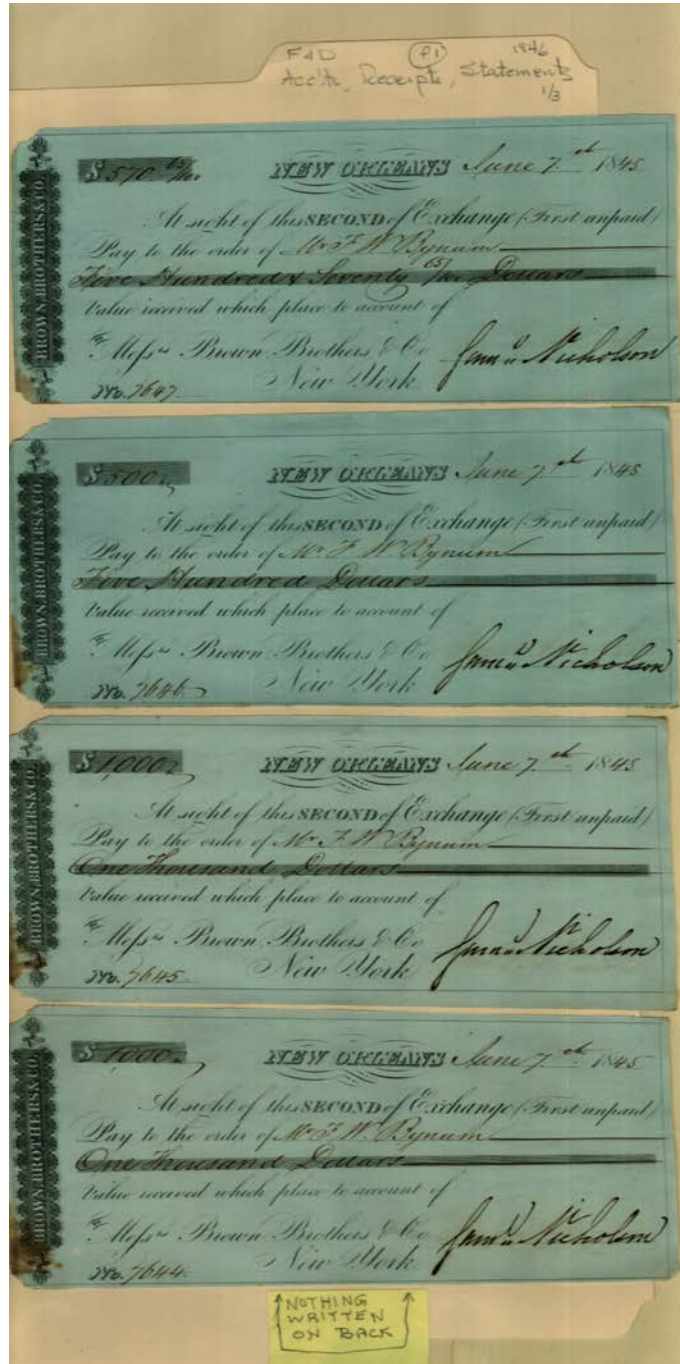 F&D (P1) 1846
Acc'ts, Receipts, Statements
1/3
BROWN BROTHERS & CO.
$ 570. 65/100 NEW ORLEANS June 7.th 1845
At sight of this SECOND of Exchange (First unpaid)
Pay to the order of Mr F W Bynum
Five Hundred & Seventy 65/100 Dollars
Value received which place to account of
To Messrs Brown Brothers & Co
New York
No. 7647
Nicholson
BROWN BROTHERS & CO.
$ 500 NEW ORLEANS June 7.th 1845
At sight of this SECOND of Exchange (First unpaid)
Pay to the order of Mr F W Bynum
Five Hundred Dollars
Value received which place to account of
To Messrs Brown Brothers & Co
New York
No. 7646
Nicholson
BROWN BROTHERS & CO.
$ 1,000 NEW ORLEANS June 7.th 1845
At sight of this SECOND of Exchange (First unpaid)
Pay to the order of Mr F W Bynum
One Thousand Dollars
Value received which place to account of
To Messrs Brown Brothers & Co
New York
No. 7645
Nicholson
BROWN BROTHERS & CO.
$ 1000 NEW ORLEANS June 7.th 1845
At sight of this SECOND of Exchange (First unpaid)
Pay to the order of Mr F W Bynum
One Thousand Dollars
Value received which place to account of
To Messrs Brown Brothers & Co
New York
No. 7644
Nicholson
NOTHING
WRITTEN
ON BACK